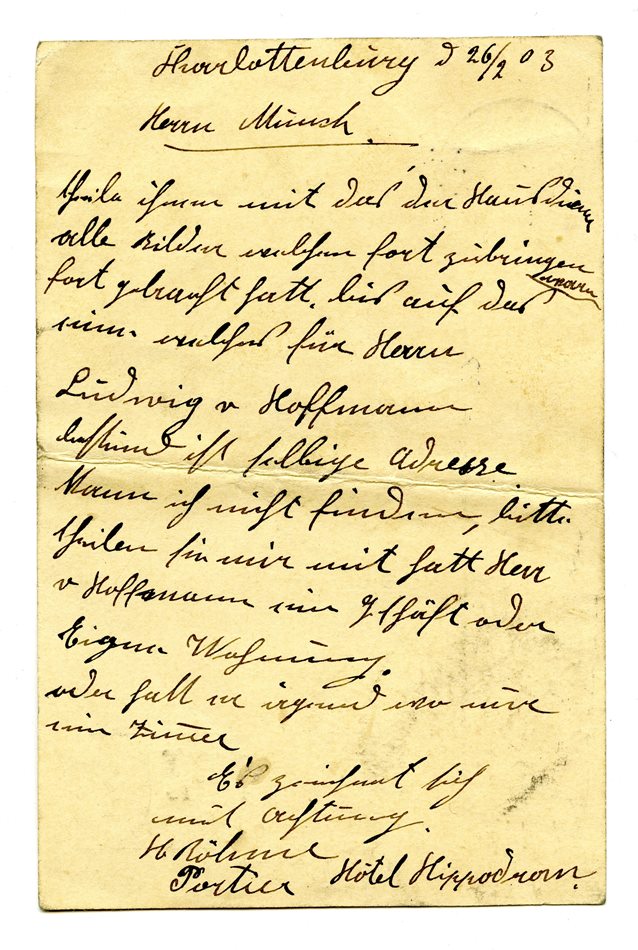 Charlottenburg d 26/2 03
Herrn Munch.
theile ihnen mit das der Hausdiener
alle Bilder welchen fort zubringen
waren
fort gebracht hatt. bis auf das
eine welches für Herrn
Ludwig v Hoffmann
bestimd ist selbige Adresse
kann ich nicht finden, bitte
theilen sie mir mit hatt Herr
v Hoffmann ein Gschäft oder
Eigene Wohnung.
oder hatt er irgend wo nur
ein Zimer
Es zeichnet sich
mit Achtung.
H Böhme
Portier Hôtel Hippodrom.